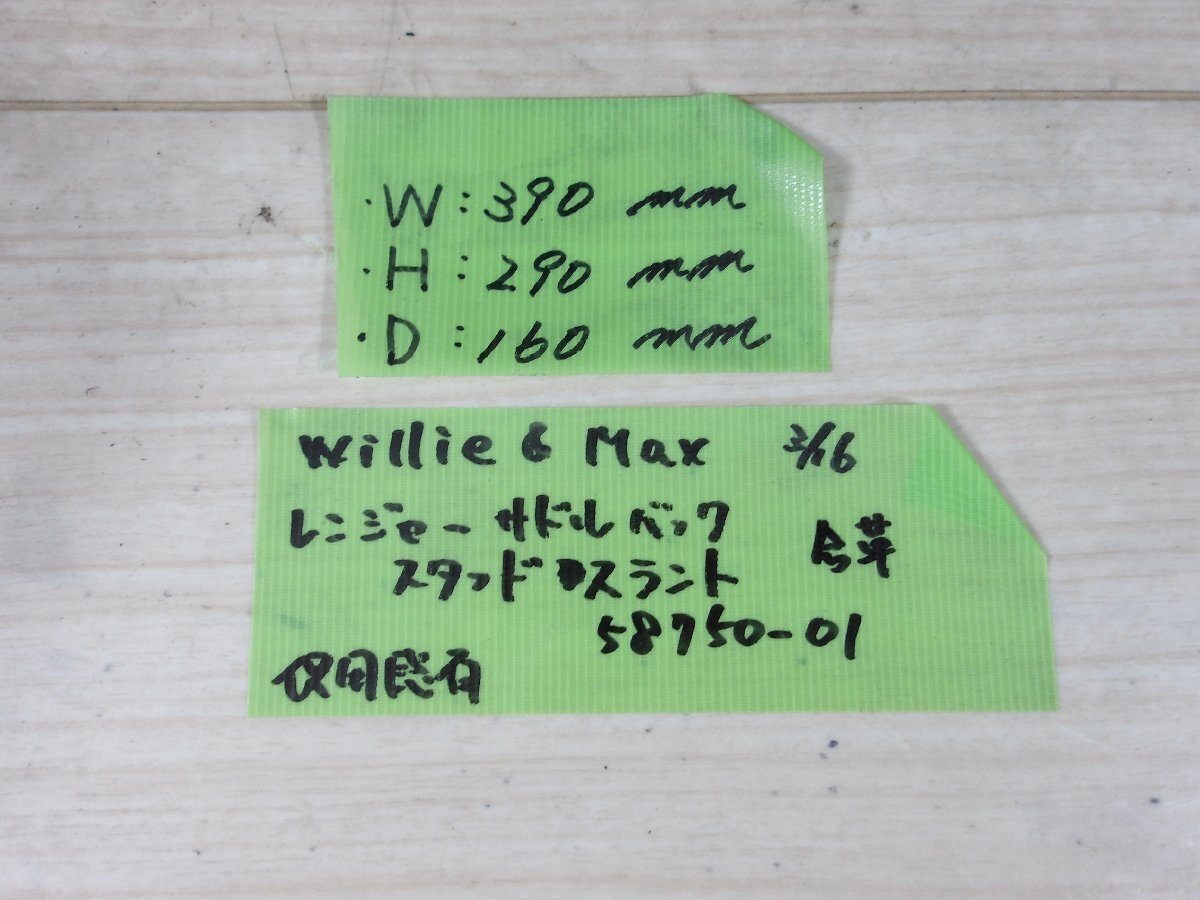 ・W:390 mm
・H:290 mm
・D:160 mm
Willie & Max 3/16
レンジャーサドルバック 合革
スタッド スラント
58750-01
使用感有